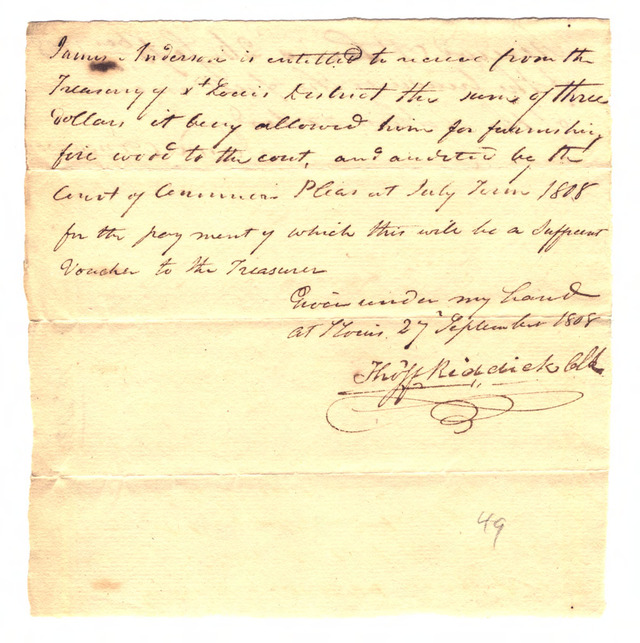 James Anderson is entitled to receive from the
Treasury of St Louis District the sum of three
dollars it being allowed him for furnishing
fire wood to the cout, and audited by the
Court of Common Pleas at July Term 1808
for the payment of which this will be a Sufficent
Voucher to the Treasurer
Given under my hand
at St Louis 27 September 1808
Thos F Riddick Clk
49